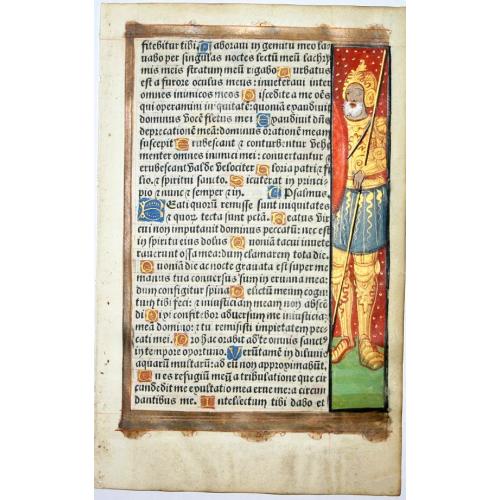 fitebitur tibi. Laboravi in gemitu meo la
uabo per singulas noctes lectū meū lachry
mis meis stratum meū rigabo Turbatus
est a furore oculus meus: inueteraui inter
omnes inimicos meos Discedite a me oēs
qui operamini iniquitatē: quoniā exaudiuit
dominus vocē fletus mei Exaudiuit dn̄s
deprecationē meā: dominus orationē meam
suscepit Erubescant & conturbētur vehe
menter omnes inimici mei: conuertantur &
erubescant valde velociter Gloria patri &
lio. & spiritui sancto. Sicut erat in princi
pio & nunc & semper & in. Psalmus.
Beati quorū remisse sunt iniquitates
& quorū tecta sunt pctā. Beatus vir
cui non imputauit dominus peccatū: nec est
in spiritu eius dolus Quoniā tacui inuete
rauerunt ossa mea: dum clamarem tota die.
Quoniā die ac nocte grauata est super me
manus tua conuersus sum in erumna mea:
dum configitur spina Delictū meum cogni
tum tibi feci: & iniusticiam meam non abscō
di Dixi confitebor aduersum me iniusticiā
meā domino: & tu remisisti impietatem pec
cati mei. Pro hac orabit ad te omnis sanct9
in tempore oportuno. Verūtamē in diluuio
aquarū multarū: ad eū non approximabūt.
Tu es refugiū meū a tribulatione que cir
cundedit me exultatio mea erue me: a circun
dantibus me. Intellectum tibi dabo et